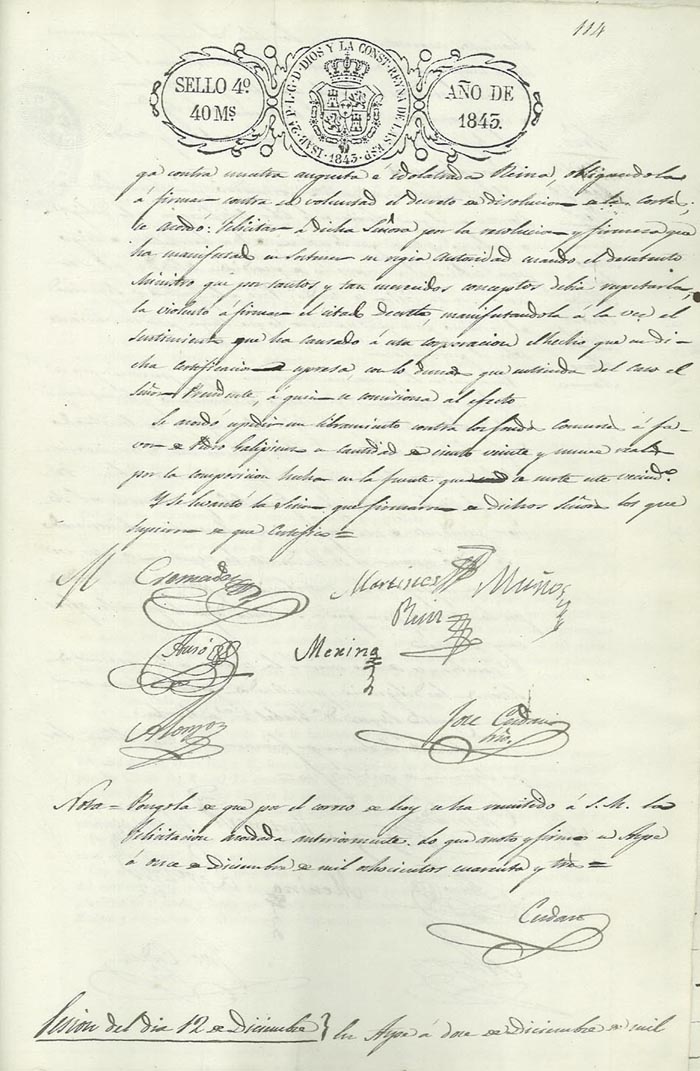 114
SELLO 4º.
40 Ms
ISAB. 2ª. P. L. G. D. DIOS Y LA CONST. REYNA DE LAS ESP.
1843.
AÑO DE
1843.
ga contra nuestra augusta é idolatrada Reina, obligandola
á firmar contra su voluntad el decreto de disolucion de las Cortes;
se acordó: Felicitar á dicha Señora por la resolucion y firmeza que
ha manifestado en sostener su regia autoridad cuando el desatento
Ministro que por tantos y tan merecidos conceptos debia respetarla,
la violentó á firmar el citado decreto, manifestandola á la vez el
sentimiento que ha causado á esta corporacion el hecho que en di-
cha certificacion espresa con lo demas que entienda del caso el
Señor Presidente, á quien se comisiona al efecto
Se acordó espedir un libramiento contra los fondos comunes á fa-
vor de Pedro en cantidad de ciento veinte y nueve reales
por la composicion hecha en la fuente que se surte este vecindº.
Y se levantó la Sesion que firmaron de dichos Señores los que
supieron de que Certifico=
Cremades
Martinez
Muños
Ruiz
Aznó
Merino
Alonso
Jose Cerdan
Srio.
Nota= Pongola de que por el correo de hoy se ha remitido á S. M. la
Felicitacion acordada anteriormente. Lo que anoto y firmo en Aspe
á once de Diciembre de mil ochocientos cuarenta y tres=
Cerdan
Sesion del dia 12 de Diciembre} En Aspe á doce de Diciembre de mil